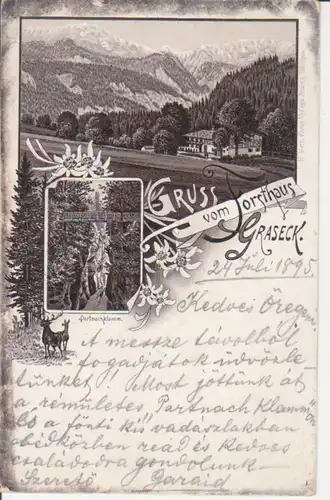 GRUSS
vom Forsthaus
GRASECK.
Partnachklamm.
24 Juli 1895
Kedves Öregem
A messze távolból
fogadjátok üdvözle
tünket! Most jöttünk át
a rémületes Partnach Klammon
és a fönti kis vadaszlakban
ebédközben reád és kedves
családodra gondolunk –
Szerető